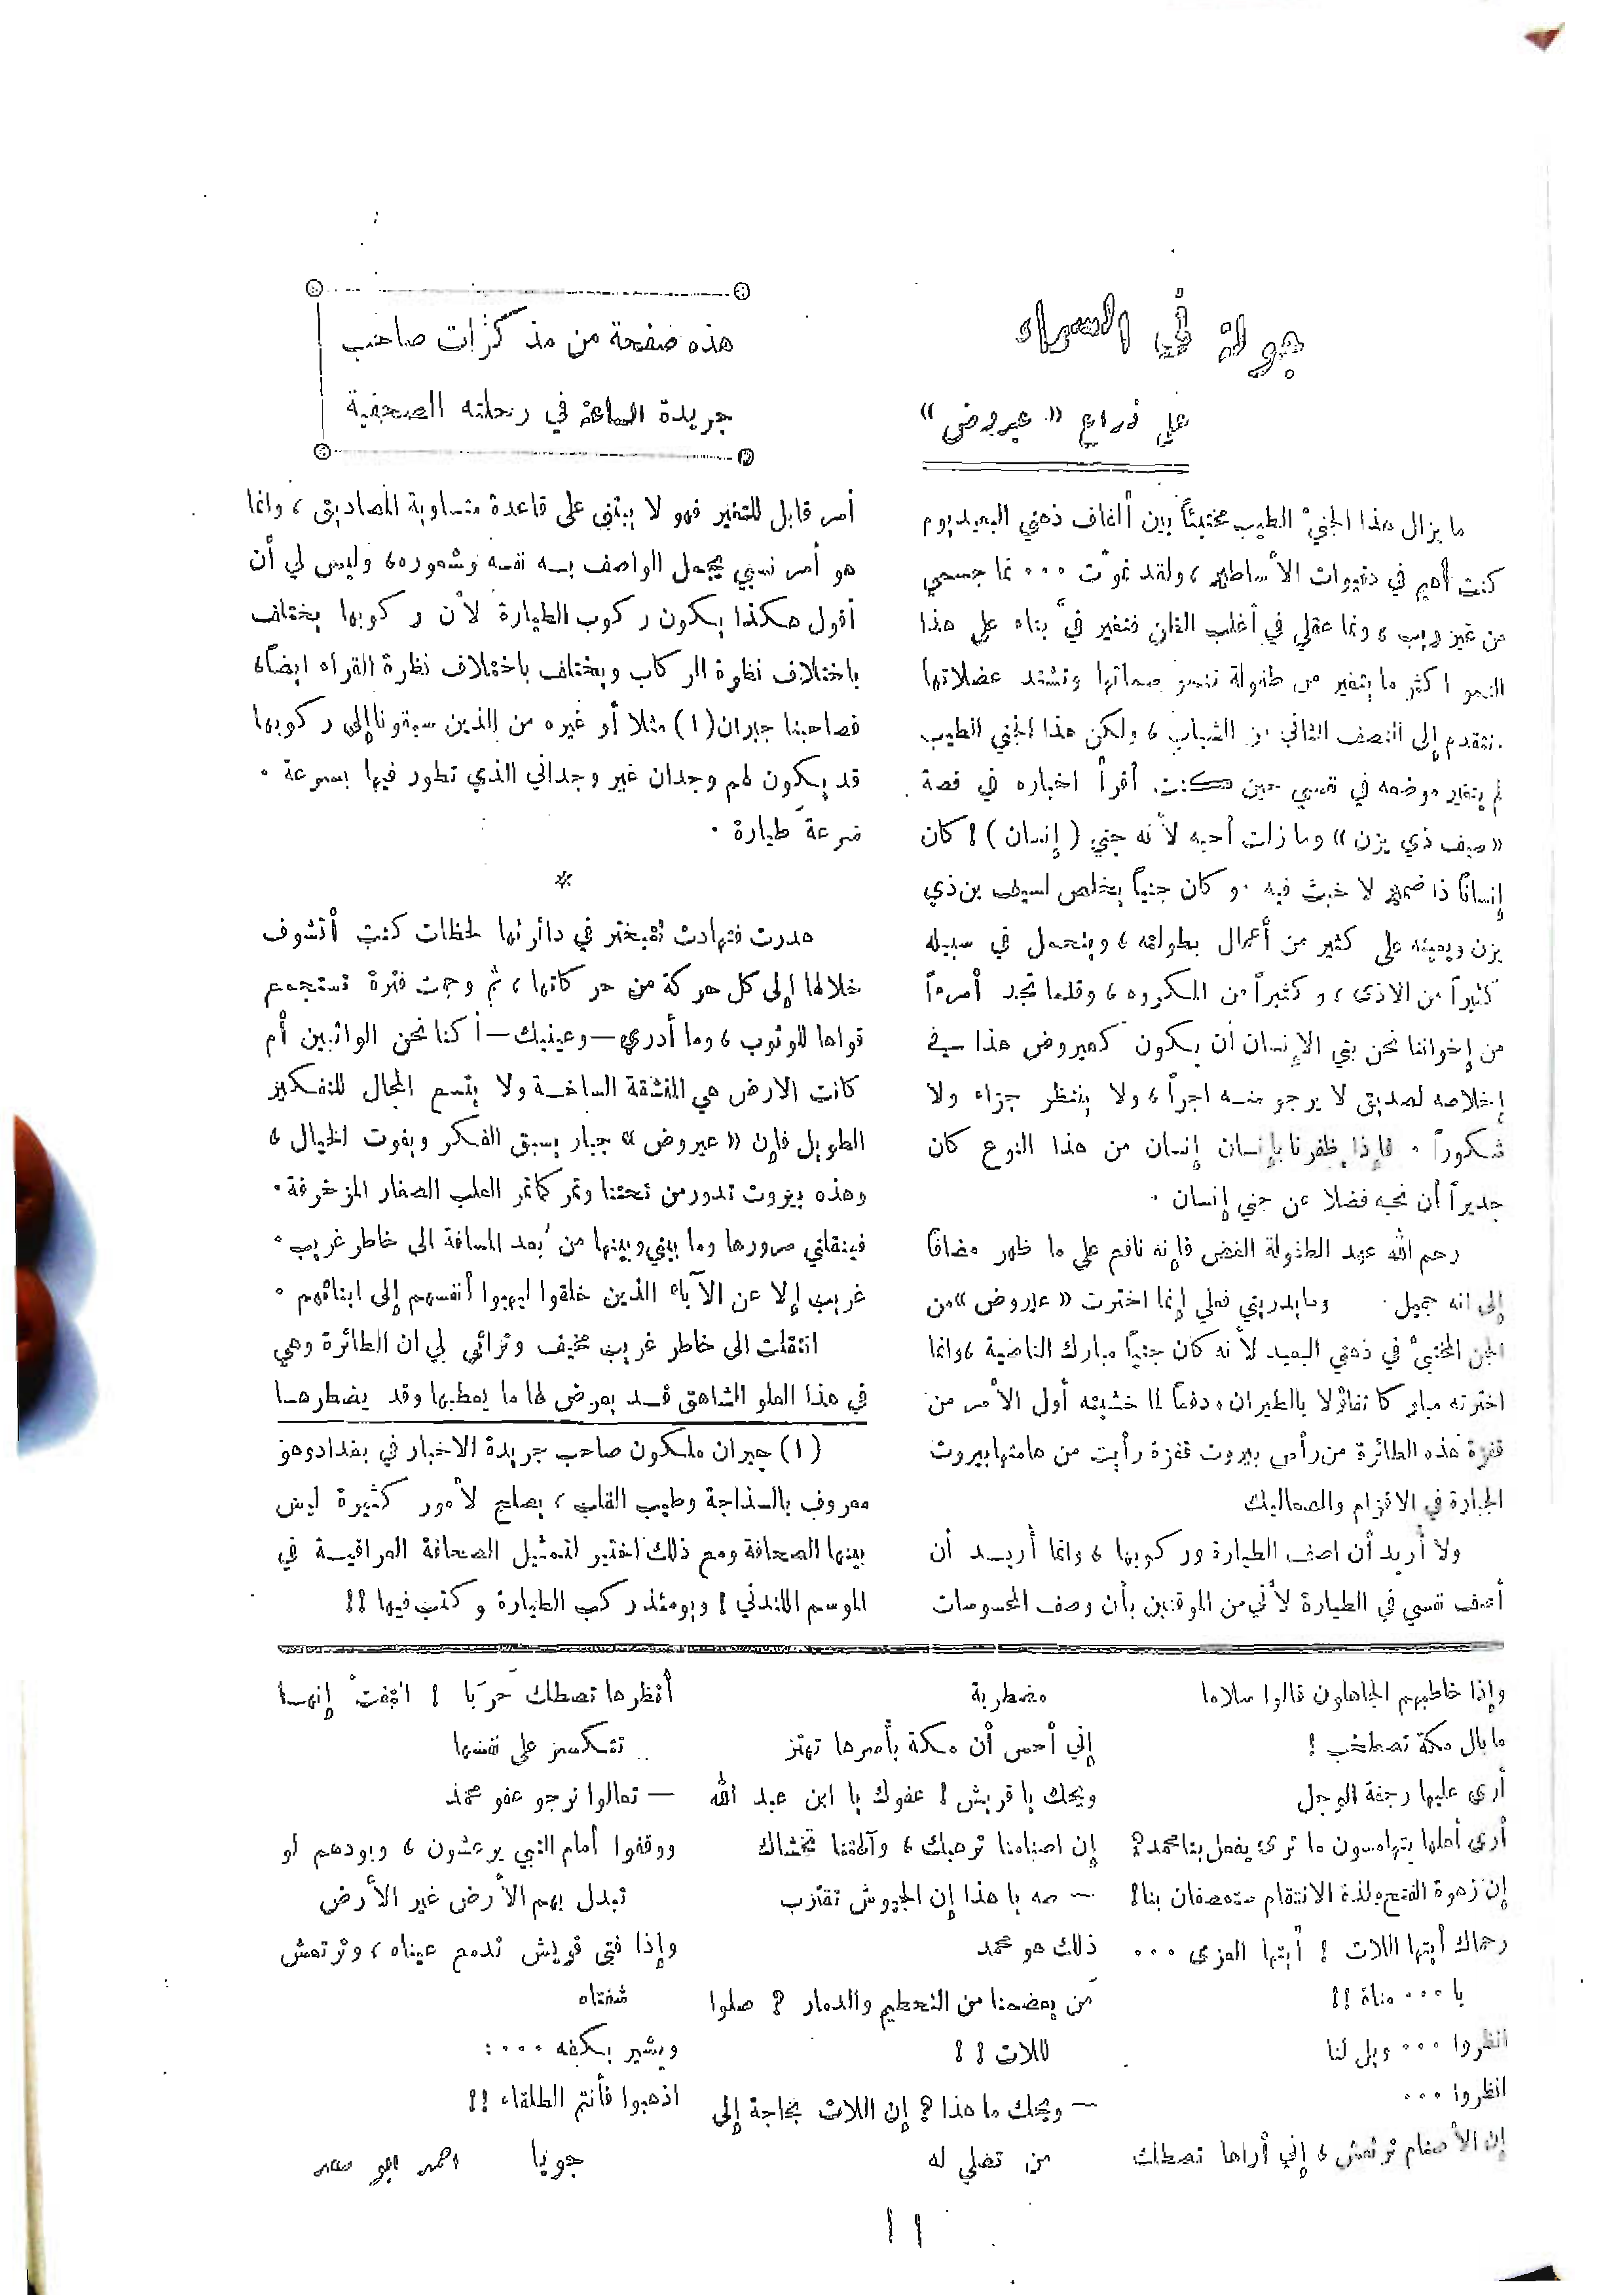 جولة في السماء
على ذراع « عيروض »
هذه صفحة من مذكرات صاحب
جريدة الساعة في رحلته الصحفية
ما يزال هذا الجنيّ الطيب مختبئاً بين ألفاف ذهني البعيد يوم
كنت أهيم في دنيوات الأساطير ، ولقد نموت ٠٠٠ نما جسمي
من غير ريب ، ونما عقلي في أغلب الظن فتغير فيّ بناء على هذا
النمو اكثر ما يتغير من طفولة تنمو سماتها وتشتد عضلاتها
نتقدم إلى النصف الثاني من الشباب ، ولكن هذا الجني الطيب
لم يتغير موضعه في نفسي حين كنت أقرأ اخباره في قصة
« سيف ذي يزن » وما زلت أحبه لأنه جني ( إنسان ) ! كان
إنساناً ذا ضمير لا خبث فيه . و كان جنياً يخلص لسيف بن ذي
يزن ويعينه على كثير من أعمال بطولته ، ويتحمل في سبيله
كثيراً من الاذى ، و كثيراً من المكروه ، وقلما تجد أمرءاً
من إخواننا نحن بني الإنسان أن يكون كعيروض هذا في
إخلاصه لصديق لا يرجو منه اجراً ، ولا ينتظر جزاء ولا
شكوراً . فإذا ظفرنا بإنسان إنسان من هذا النوع كان
جديراً أن نحبه فضلا عن جني إنسان .
رحم الله عهد الطفولة الغض فإنه نافع على ما ظهر مضافاً
إلى انه جميل . وما يدريني فعلي إنما اخترت « عيروض » من
الجن المختبئ في ذهني البعيد لأنه كان جنياً مبارك الناصية ، وانما
اخترته مبار كا تفاؤلا بالطيران ، دفعاً لما خشيته أول الأمر من
قفزة هذه الطائرة من رأس بيروت قفزة رأيت من هامتها بيروت
الجبارة في الاقزام والصعاليك
ولا أريد أن اصف الطيارة ور كوبها ، وانما أريد أن
أصف نفسي في الطيارة لأني من الموقنين بأن وصف المحسوسات
أمر قابل للتغير فهو لا يبتنى على قاعدة متساوية المصاديق ، وانما
هو أمر نسبي يجمل الواصف به نفسه وشعوره ، وليس لي أن
أقول هكذا يكون ر كوب الطيارة لأن ر كوبها يختلف
باختلاف نظرة الر كاب ويختلف باختلاف نظرة القراء ايضاً ،
فصاحبنا جبران (١) مثلا أو غيره من الذين سبقونا إلى ر كوبها
قد يكون لهم وجدان غير وجداني الذي تطور فيها بسرعة .
سرعة طيارة .
*
هدرت فتهادت تتبختر في دائرتها لحظات كنت أتشوف
خلالها إلى كل حر كة من حر كاتها ، ثم وجمت فترة تستجمع
قواها للوثوب ، وما أدري — وعينيك — أ كنا نحن الواثبين أم
كانت الارض هي المنشقة الساخة ولا يتسع المجال للتفكير
الطويل فإن « عيروض » جبار يسبق الفكر ويفوت الخيال ،
وهذه بيروت تدور من تحتنا وتمر كما تمر العلب الصغار المزخرفة .
فينقلني مرورها وما بيني وبينها من بُعد المسافة الى خاطر غريب .
غريب إلا عن الآباء الذين خلقوا ليهبوا أنفسهم إلى ابنائهم .
انتقلت الى خاطر غريب مخيف وترائى لي ان الطائرة وهي
في هذا العلو الشاهق قد يعرض لها ما يعطبها وقد يضطرها
(١) جبران ملكون صاحب جريدة الاخبار في بغداد وهو
معروف بالسذاجة وطيب القلب ، يصلح لأمور كثيرة ليس
بينها الصحافة ومع ذلك اختير لتمثيل الصحافة العراقية في
الموسم اللندني ! ويومئذ ر كب الطيارة و كتب فيها !!
وإذا خاطبهم الجاهلون قالوا سلاما
ما بال مكة تصطخب !
أرى عليها رجفة الوجل
أرى أهلها يتهامسون ما ترى يفعل بنا محمد ؟
إن زهوة الفتح ولذة الانتقام ستعصفان بنا !
رحماك أيتها اللات ! أيتها العزى ٠٠٠
يا ٠٠٠ مناة !!
انظروا ٠٠٠ ويل لنا
انظروا ٠٠٠
إن الأصنام ترتعش ، إني أراها تصطك
مضطربة
إني أحس أن مكة بأسرها تهتز
ويحك يا قريش ! عفوك يا ابن عبد الله
إن اصنامنا ترهبك ، وآلهتنا تخشاك
— صه يا هذا إن الجيوش تقترب
ذلك هو محمد
مَن يعصمنا من التحطيم والدمار ؟ صلوا
للات !!
— ويحك ما هذا ؟ إن اللات بحاجة إلى
من تصلي له
أنظرها تصطك حرَبا ! انجفت إنها
تتكسر على نفسها
— تعالوا نرجو عفو محمد
ووقفوا أمام النبي يرعشون ، وبودهم لو
تبدل بهم الأرض غير الأرض
وإذا فتى قريش تدمع عيناه ، وترتعش
شفتاه
ويشير بكفه ٠٠٠ :
اذهبوا فأنتم الطلقاء !!
جويا احمد ابو سعد
١١